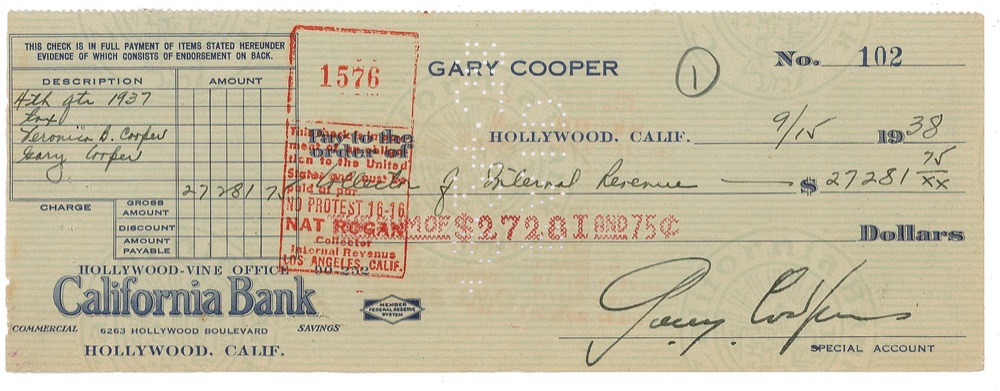 THIS CHECK IS IN FULL PAYMENT OF ITEMS STATED HEREUNDER
EVIDENCE OF WHICH CONSISTS OF ENDORSEMENT ON BACK.
DESCRIPTION AMOUNT
4th qtr 1937
Tax
Veronica B. Cooper
Gary Cooper
27281 75
CHARGE
GROSS AMOUNT
DISCOUNT
AMOUNT PAYABLE
1576
GARY COOPER
1
No. 102
HOLLYWOOD, CALIF. 9/15 1938
Pay to the
order of Collector of Internal Revenue $27281 75/XX
This check is in pay-
ment of an obliga-
tion to the United
States and must be
paid at par
NO PROTEST 16-16
NAT ROGAN
Collector
Internal Revenue
LOS ANGELES, CALIF.
SUM OF $27281 AND 75¢
Dollars
HOLLYWOOD-VINE OFFICE 90-232
California Bank
COMMERCIAL 6263 HOLLYWOOD BOULEVARD SAVINGS
HOLLYWOOD, CALIF.
MEMBER
FEDERAL RESERVE
SYSTEM
Gary Cooper
SPECIAL ACCOUNT